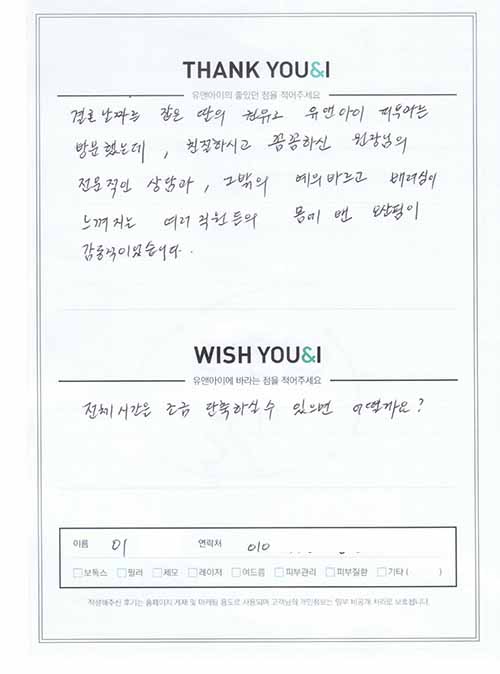 THANK YOU&I
유앤아이의 좋았던 점을 적어주세요
결혼날짜를 잡은 딸의 권유로 유앤아이 피부과를
방문했는데, 친절하시고 꼼꼼하신 원장님의
전문적인 상담과, 그밖의 예의바르고 배려심이
느껴지는 여러 직원분의 몸에 밴
감동적이었습니다.
WISH YOU&I
유앤아이에 바라는 점을 적어주세요
전체 시간을 조금 단축하실 수 있으면 어떨까요?
이름 이 연락처 010
보톡스 필러 제모 레이저 여드름 피부관리 피부질환 기타 ( )
작성해주신 후기는 홈페이지 게재 및 마케팅 용도로 사용되며 고객님의 개인정보는 일부 비공개 처리로 보호됩니다.